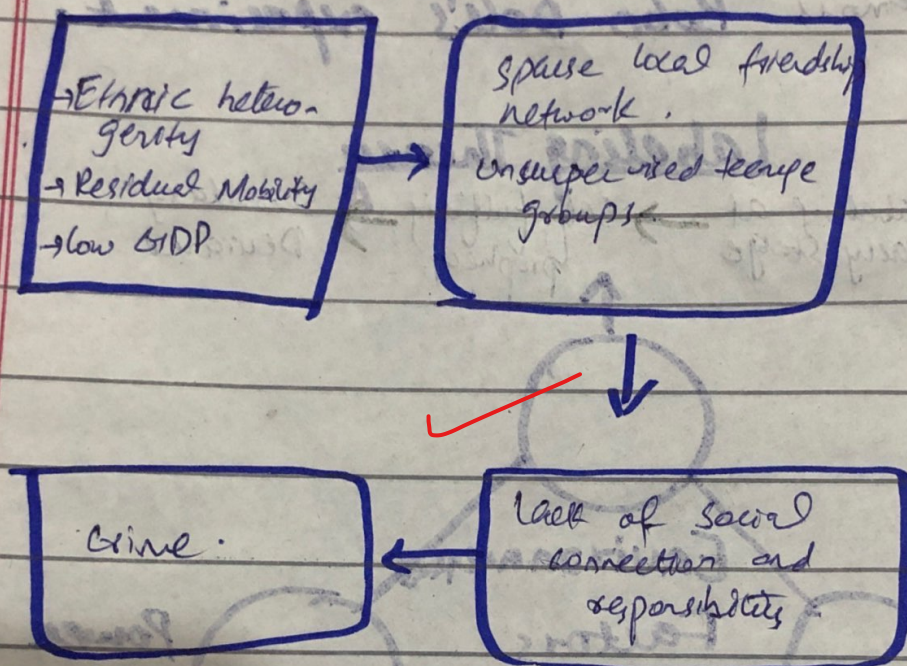 →Ethnic hetero-
gerity
→Residual Mobility
→low GDP
sparse local friendship
network.
unsupervised teenage
groups
lack of social
connection and
responsibility.
Crime.